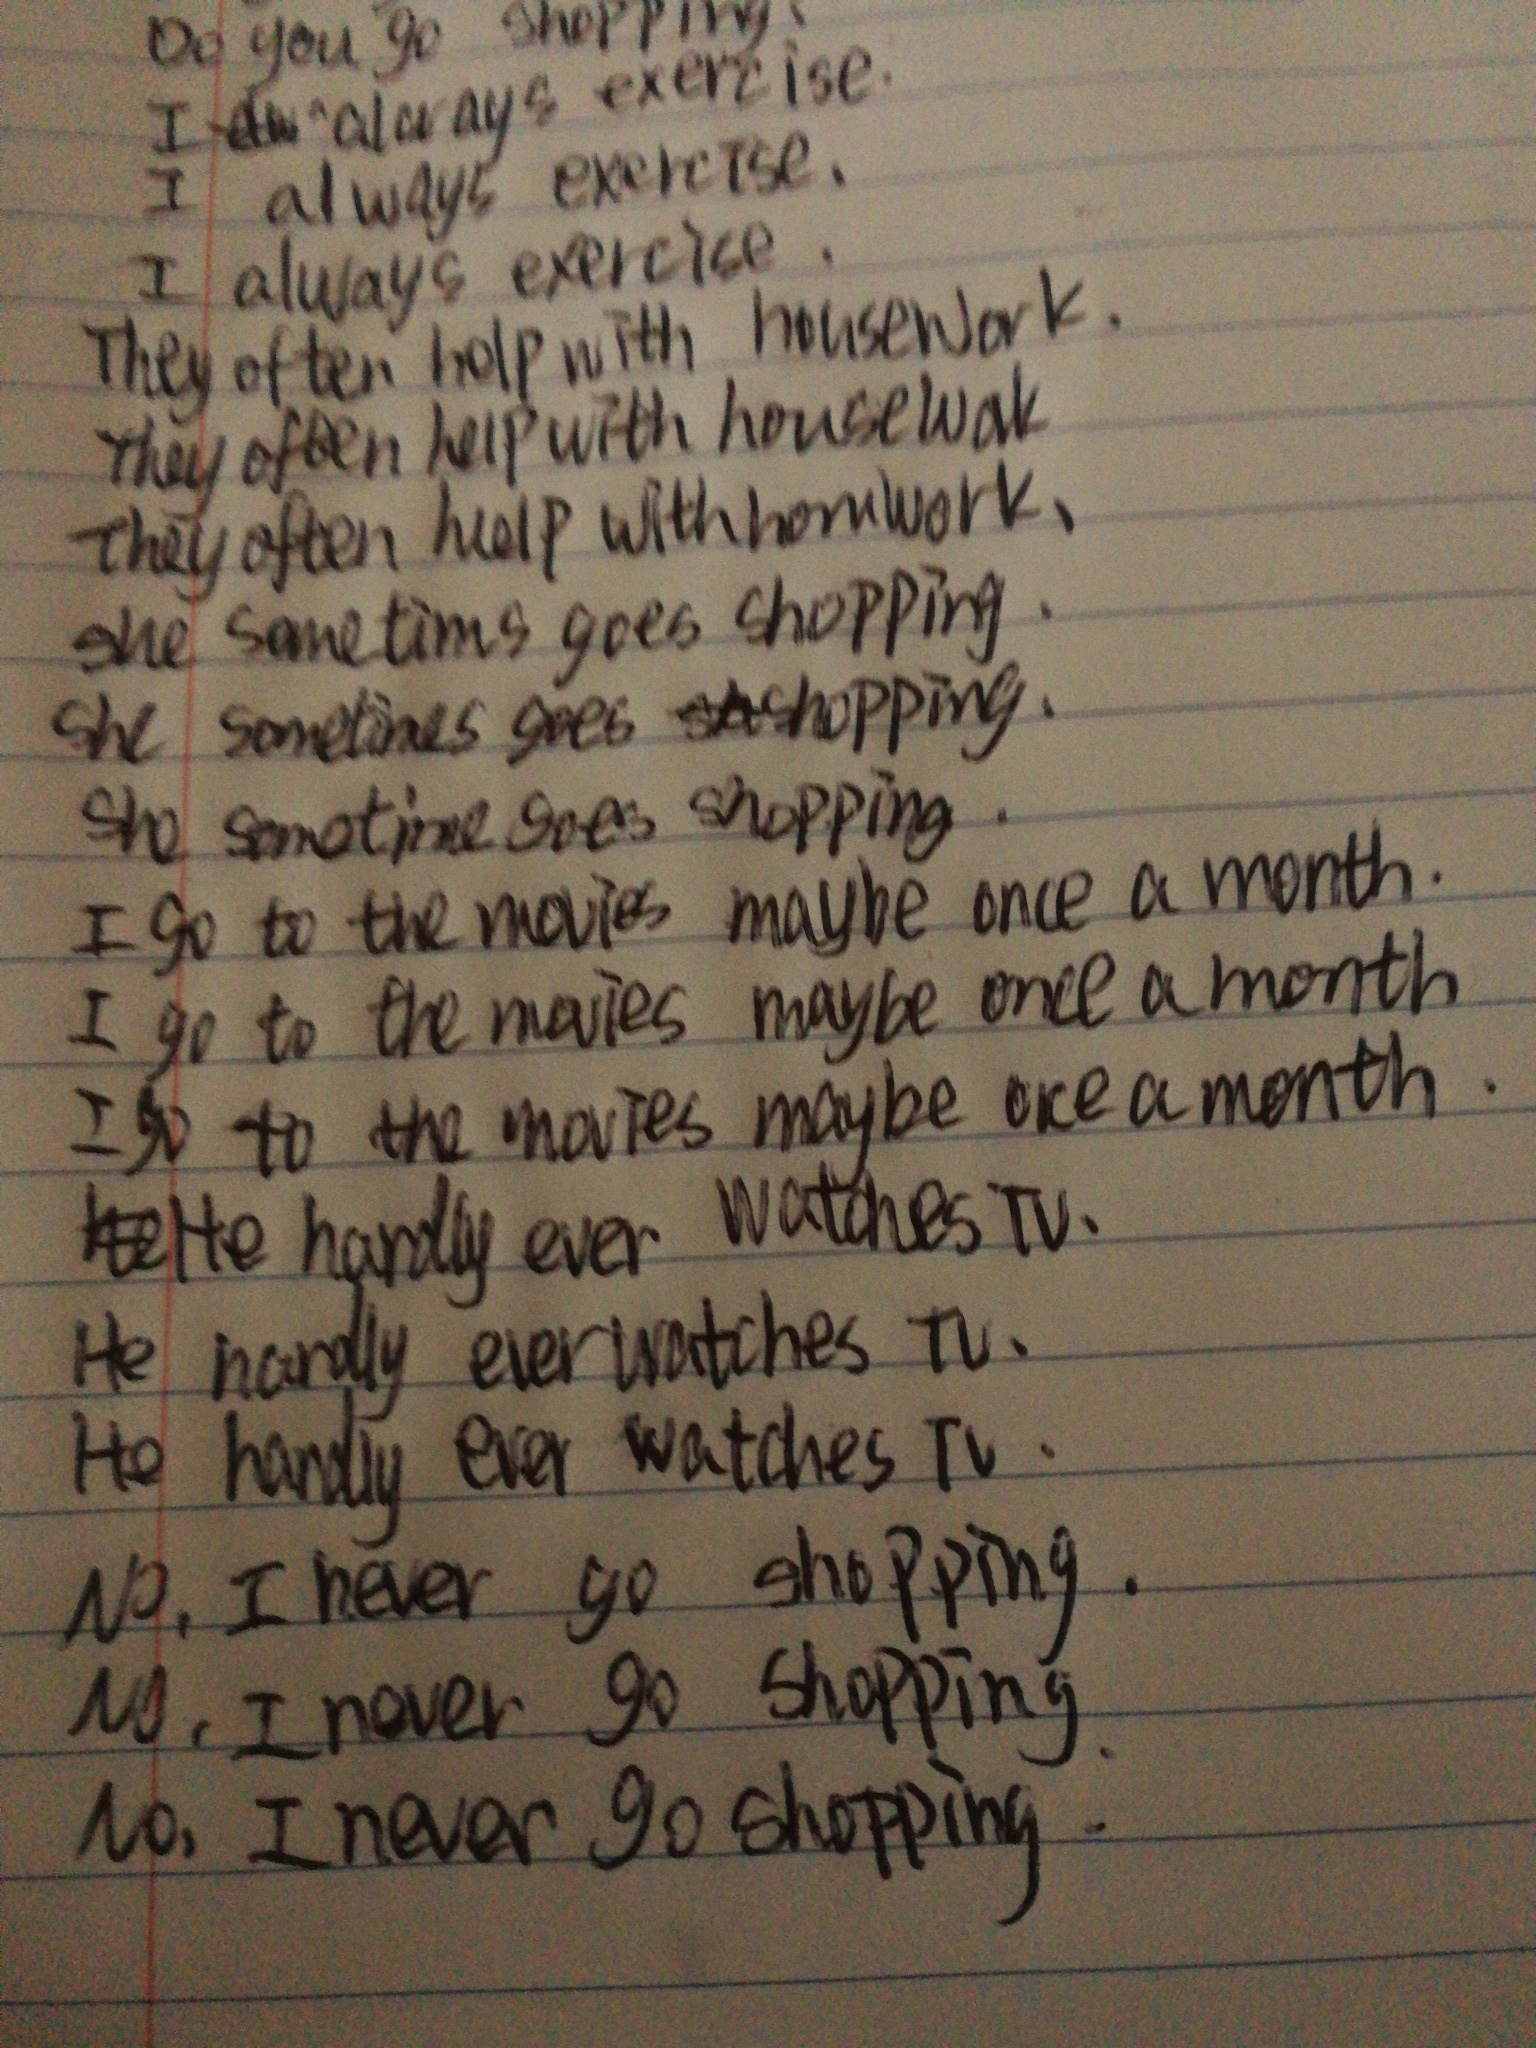 Do you go shopping.
I always exercise.
I always exercise.
I always exercise.
They often help with housework.
They often help with housewak
They often help with homework.
she sometims goes shopping.
She sometimes goes shopping.
She sometime goes shopping.
I go to the movies maybe once a month.
I go to the movies maybe once a month
I go to the movies maybe once a month.
He He hardly ever watches TV.
He hardly ever watches TV.
He hardly ever watches TV.
No, I never go shopping.
No, I never go shopping.
No, I never go shopping.